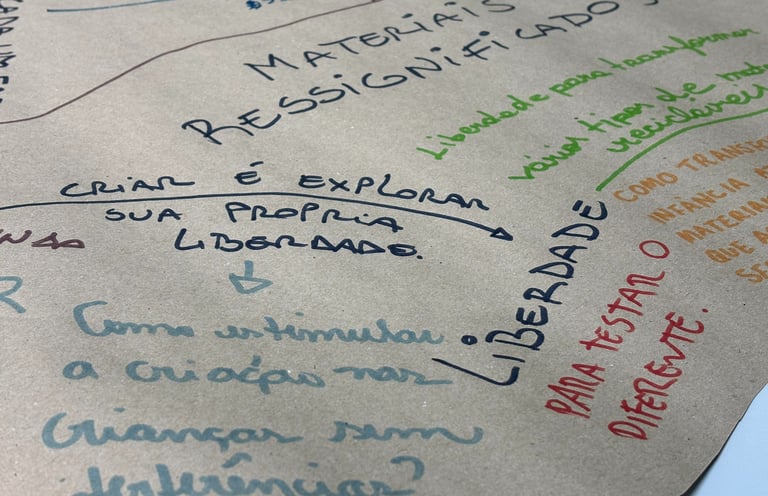 MATERIAIS
RESSIGNIFICADOS
Liberdade para transformar
vários tipos de
recicláveis
CRIAR É EXPLORAR
SUA PROPRIA
LIBERDADE.
LIBERDADE
PARA TESTAR O
DIFERENTE.
COMO
INFÂNCIA
QUE
Como estimular
a criação nas
crianças sem